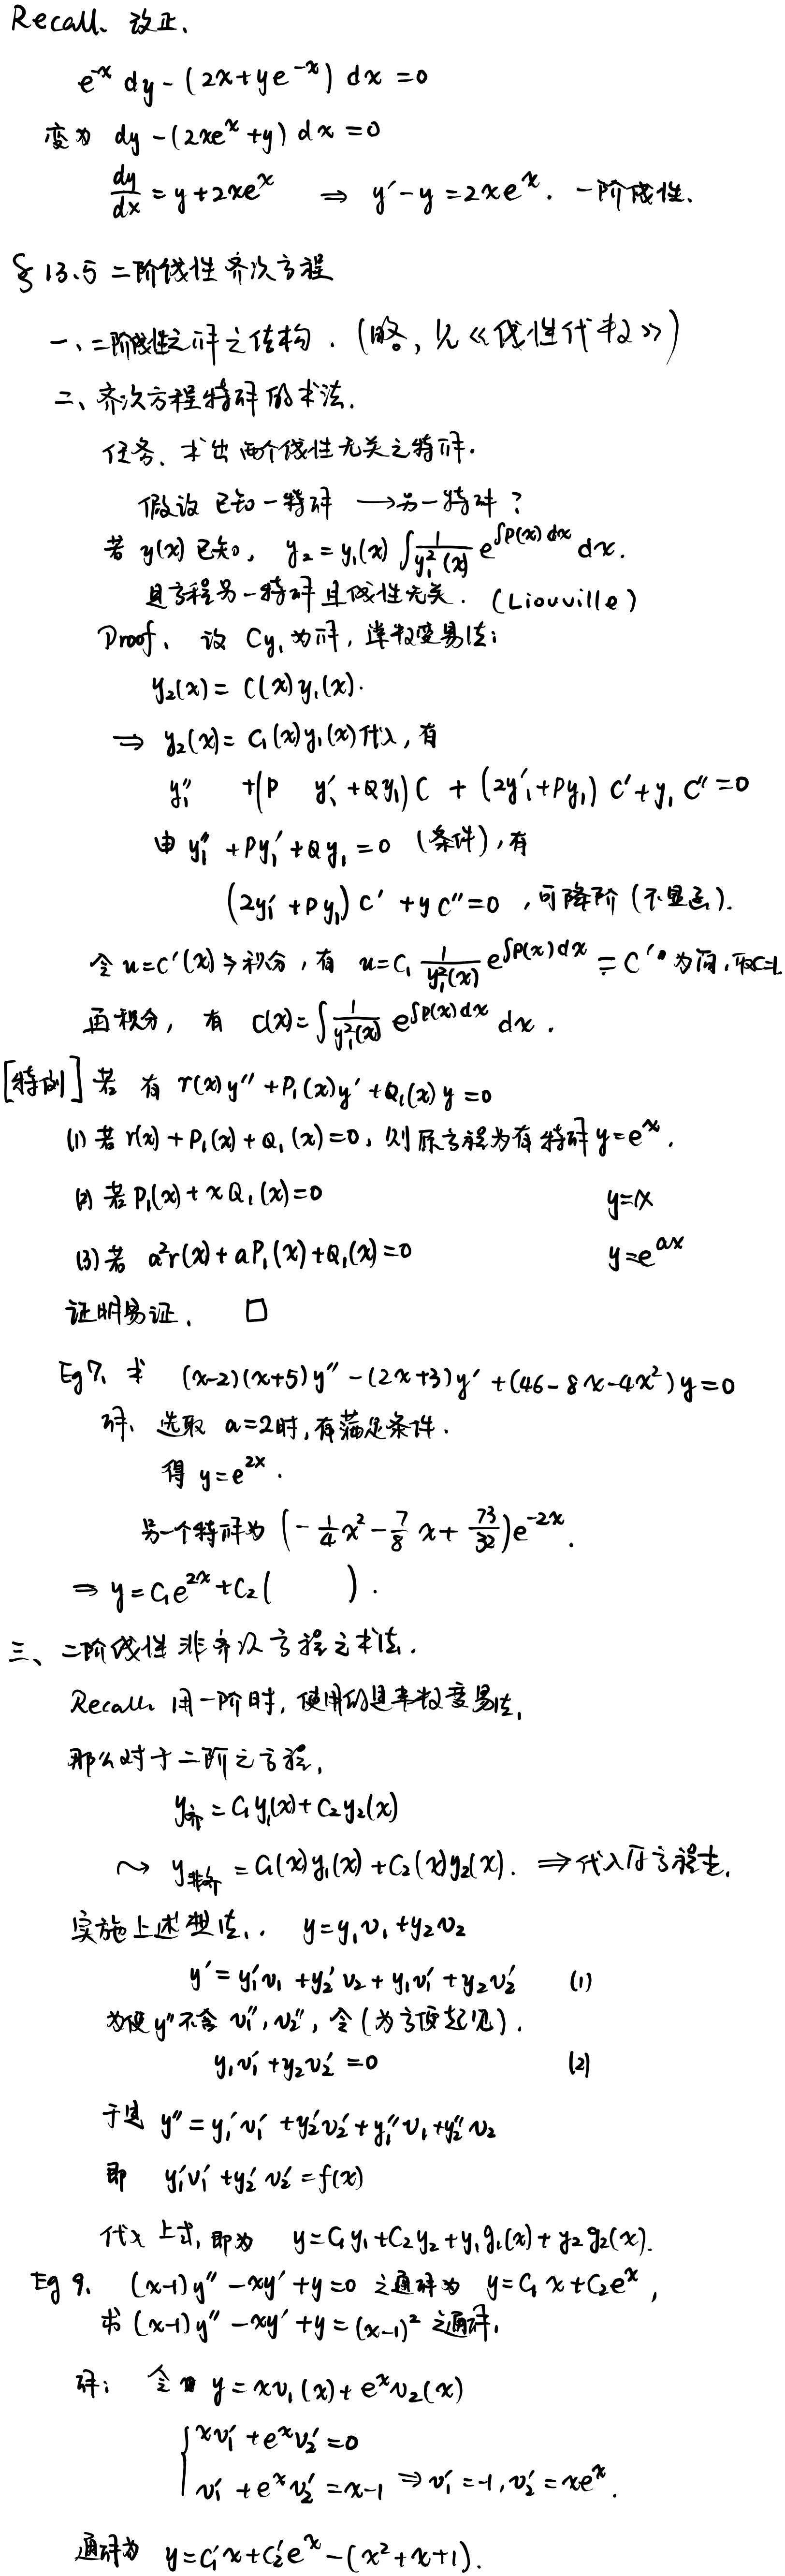 Recall. 改正.
e^{-x} dy - (2x+ye^{-x}) dx = 0
变为 dy - (2xe^x+y) dx = 0
dy/dx = y+2xe^x ⇒ y'-y = 2xe^x. 一阶线性.
§ 13.5 二阶线性齐次方程
一、二阶线性之解之结构. (略, 见《线性代数》)
二、齐次方程特解的求法.
任务. 求出两个线性无关之特解.
假设 已知一特解 → 另一特解 ?
若 y(x) 已知, y₂ = y₁(x) ∫ 1/y₁²(x) e^{∫P(x)dx} dx.
是方程另一特解且线性无关. (Liouville)
Proof. 设 Cy₁ 为解, 常数变易法:
y₂(x) = C(x)y₁(x).
⇒ y₂(x) = C₁(x)y₁(x) 代入, 有
y₁'' + (P y₁' + Qy₁) C + (2y₁'+Py₁) C' + y₁ C'' = 0
由 y₁'' + Py₁' + Qy₁ = 0 (条件), 有
(2y₁' + Py₁) C' + y C'' = 0 , 可降阶 (不显含).
令 u = C'(x) 与积分, 有 u = C₁ 1/y₁²(x) e^{∫P(x)dx} = C' 为简, 取C=1
再积分, 有 C(x) = ∫ 1/y₁²(x) e^{∫P(x)dx} dx .
[特例] 若 有 r(x)y'' + P₁(x)y' + Q₁(x)y = 0
(1) 若 r(x) + P₁(x) + Q₁(x) = 0, 则原方程为有特解 y = e^x .
(2) 若 P₁(x) + xQ₁(x) = 0 y = x
(3) 若 a²r(x) + aP₁(x) + Q₁(x) = 0 y = e^{ax}
证明易证. □
Eg 7. 求 (x-2)(x+5)y'' - (2x+3)y' + (46-8x-4x²)y = 0
解. 选取 a=2时, 有满足条件.
得 y = e^{2x} .
另一个特解为 (-1/4 x² - 7/8 x + 73/32) e^{-2x} .
⇒ y = C₁e^{2x} + C₂( ) .
三、二阶线性非齐次方程之求法.
Recall. 用一阶时, 使用的是常数变易法.
那么对于二阶之方程,
y齐 = C₁y₁(x) + C₂y₂(x)
⇝ y非齐 = C₁(x)y₁(x) + C₂(x)y₂(x). ⇒ 代入原方程去.
实施上述想法.. y = y₁v₁ + y₂v₂
y' = y₁'v₁ + y₂'v₂ + y₁v₁' + y₂v₂' (1)
为使 y'' 不含 v₁'', v₂'', 令 (为方便起见).
y₁v₁' + y₂v₂' = 0 (2)
于是 y'' = y₁'v₁' + y₂'v₂' + y₁''v₁ + y₂''v₂
即 y₁'v₁' + y₂'v₂' = f(x)
代入上式, 即为 y = C₁y₁ + C₂y₂ + y₁g₁(x) + y₂g₂(x).
Eg 9. (x-1)y'' - xy' + y = 0 之通解为 y = C₁x + C₂e^x ,
求 (x-1)y'' - xy' + y = (x-1)² 之通解.
解: 令 y = xv₁(x) + e^x v₂(x)
{ xv₁' + e^x v₂' = 0
v₁' + e^x v₂' = x-1 ⇒ v₁' = -1, v₂' = xe^x .
通解为 y = C₁'x + C₂'e^x - (x²+x+1).